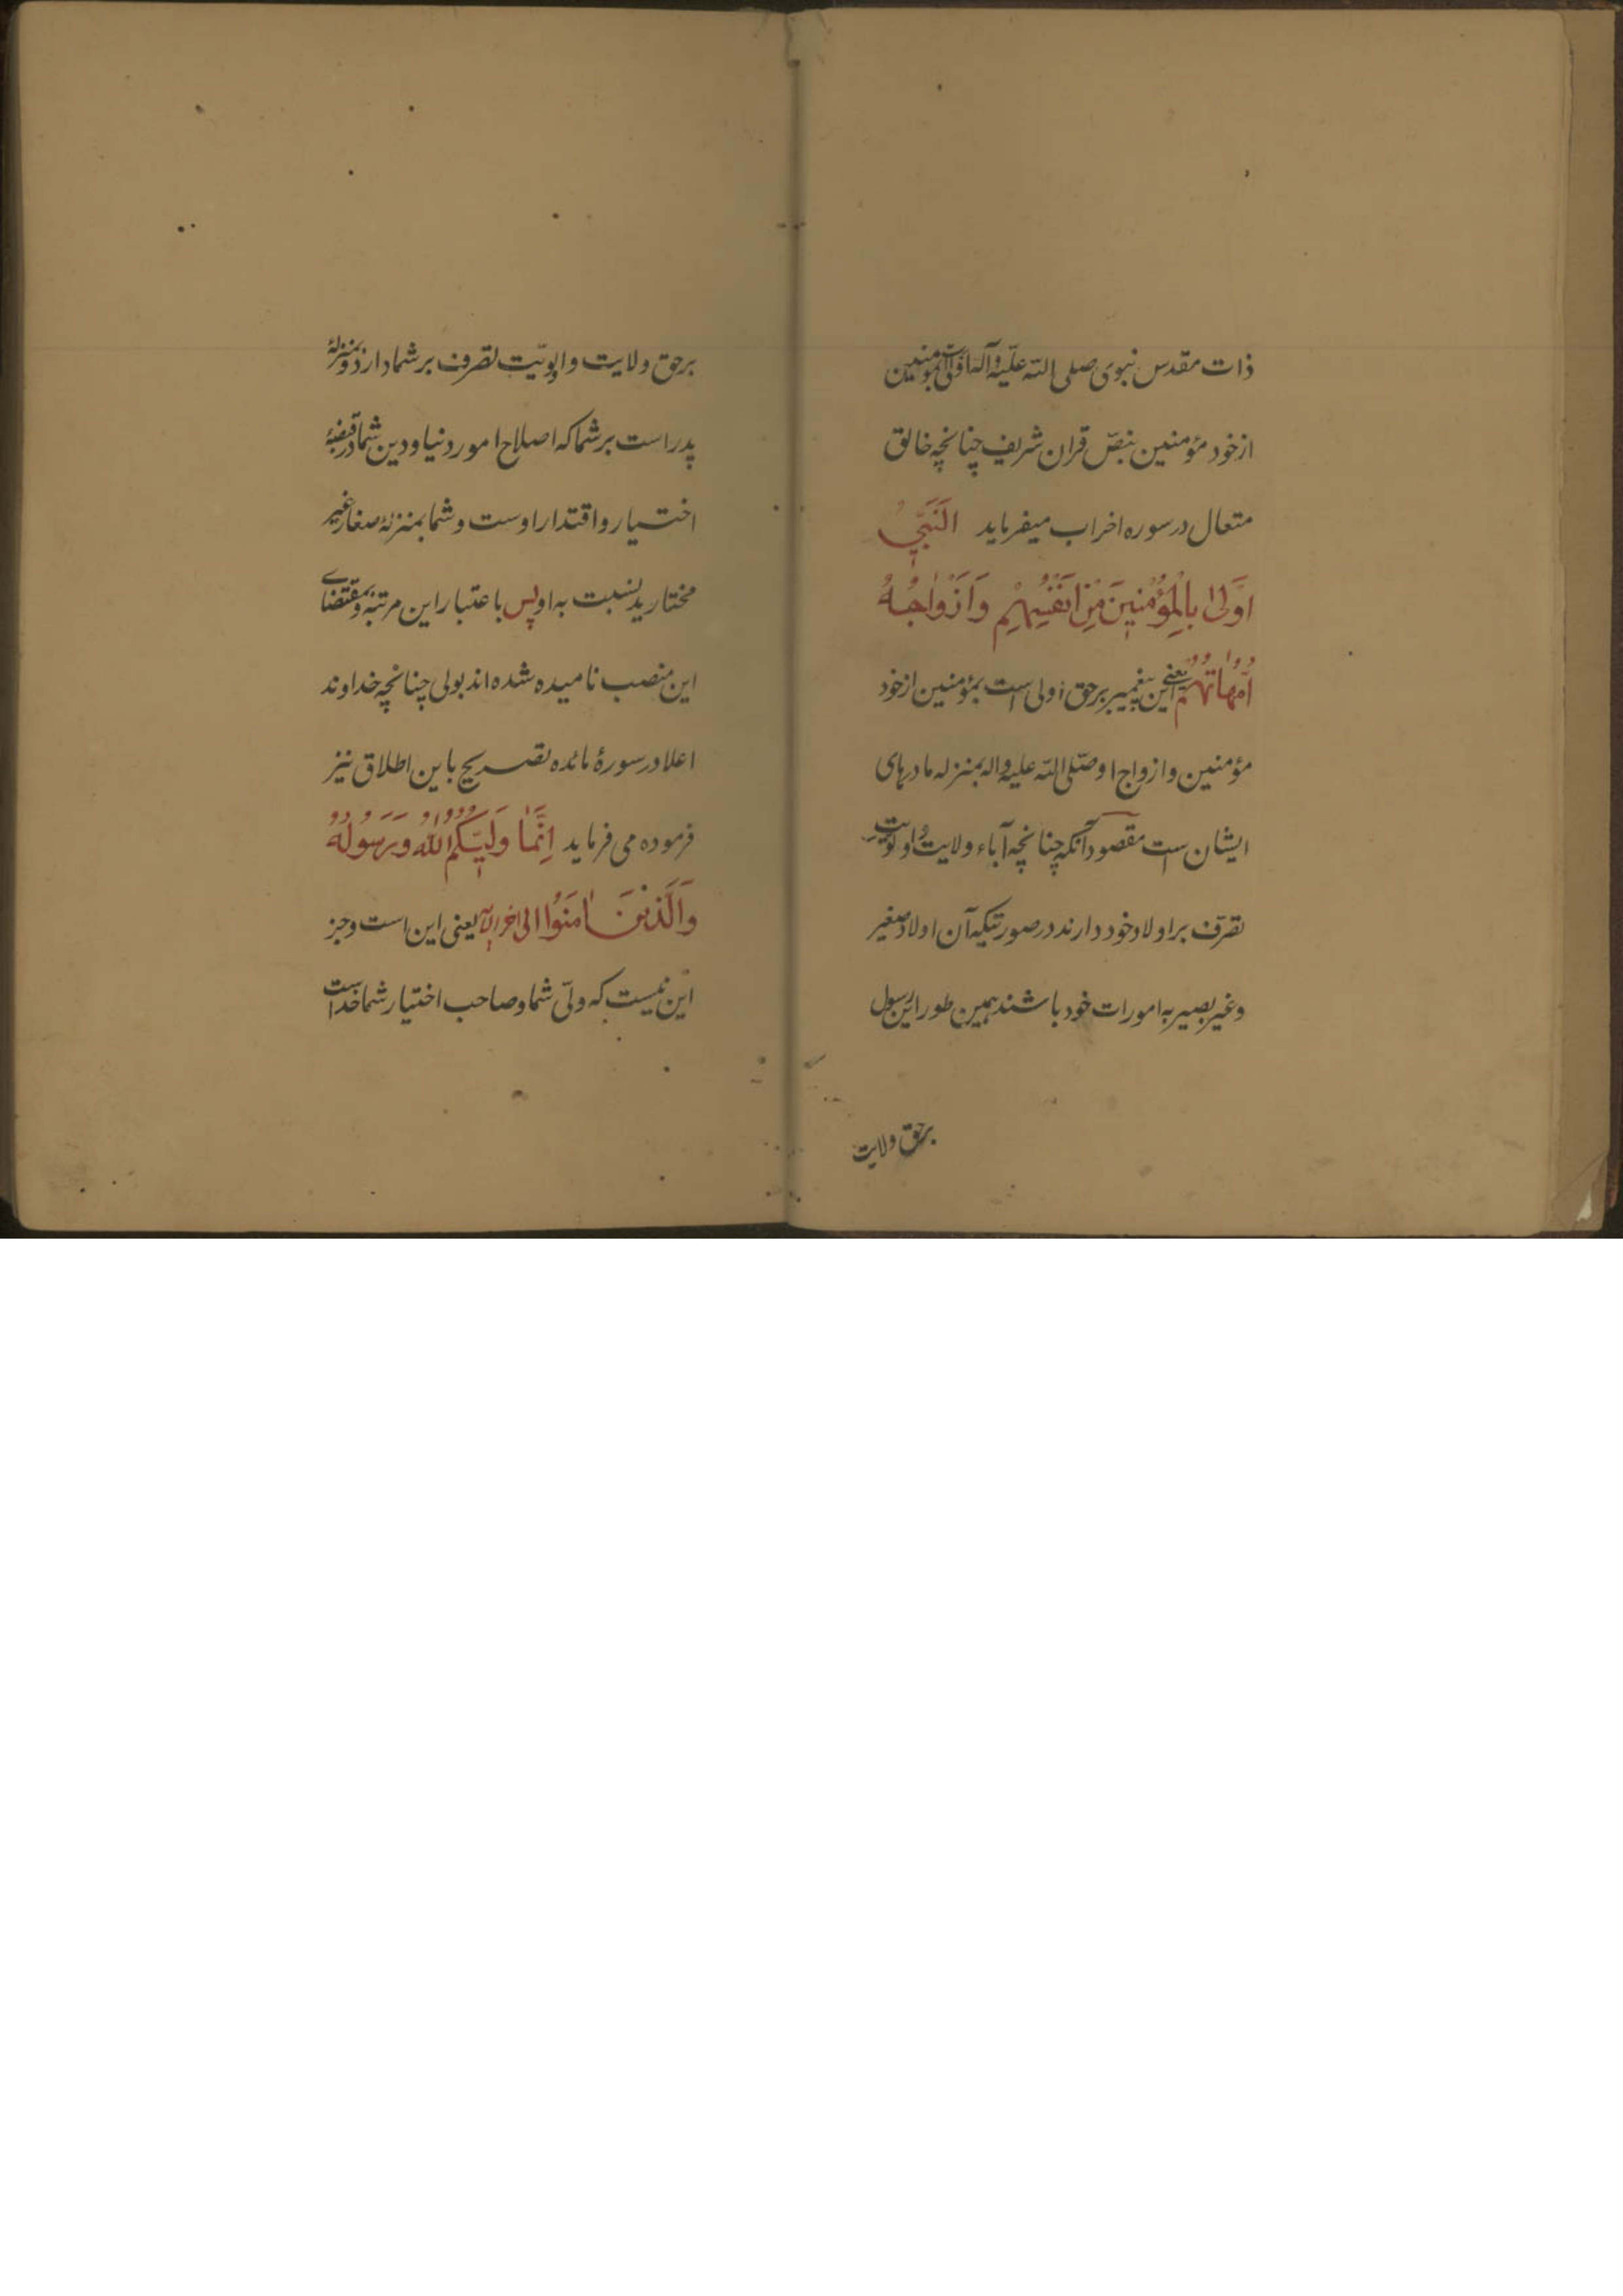 ذات مقدس نبوی صلی الله علیه وآله اولی است بمؤمنین
از خود مؤمنین بنصّ قران شریف چنانچه خالق
متعال در سوره اخراب میفرماید اَلنَّبِیُّ
اَوْلیٰ بِالْمُؤْمِنِینَ مِنْ اَنْفُسِهِمْ وَاَزْوٰاجُهُ
اُمَّهاتُهُمْ یعنی این پیغمبر برحق اولی است بمؤمنین از خود
مؤمنین و ازواج او صلّی الله علیه واله بمنزله مادرهای
ایشان است مقصود آنکه چنانچه آباء ولایت و اولویت
تصرّف بر اولاد خود دارند در صورتیکه آن اولاد صغیر
و غیر بصیر به امورات خود باشند همین طور این رسول
برحق ولایت
برحق ولایت و ابویّت تصرف بر شما دارد و بمنزلهٔ
پدر است بر شما که اصلاح امور دنیا و دین شما در قبضهٔ
اختیار و اقتدار اوست و شما بمنزلهٔ صغار غیر
مختارید نسبت به او پس باعتبار این مرتبه و بمقتضای
این منصب نامیده شده اند بولی چنانچه خداوند
اعلا در سورهٔ مائده تصریح باین اطلاق نیز
فرموده می فرماید اِنَّمٰا وَلِیُّکُمُ اللهُ وَرَسُولُهُ
وَالَّذِینَ اٰمَنُوا الی اخر الآیه یعنی این است و جز
این نیست که ولیّ شما و صاحب اختیار شما خداست